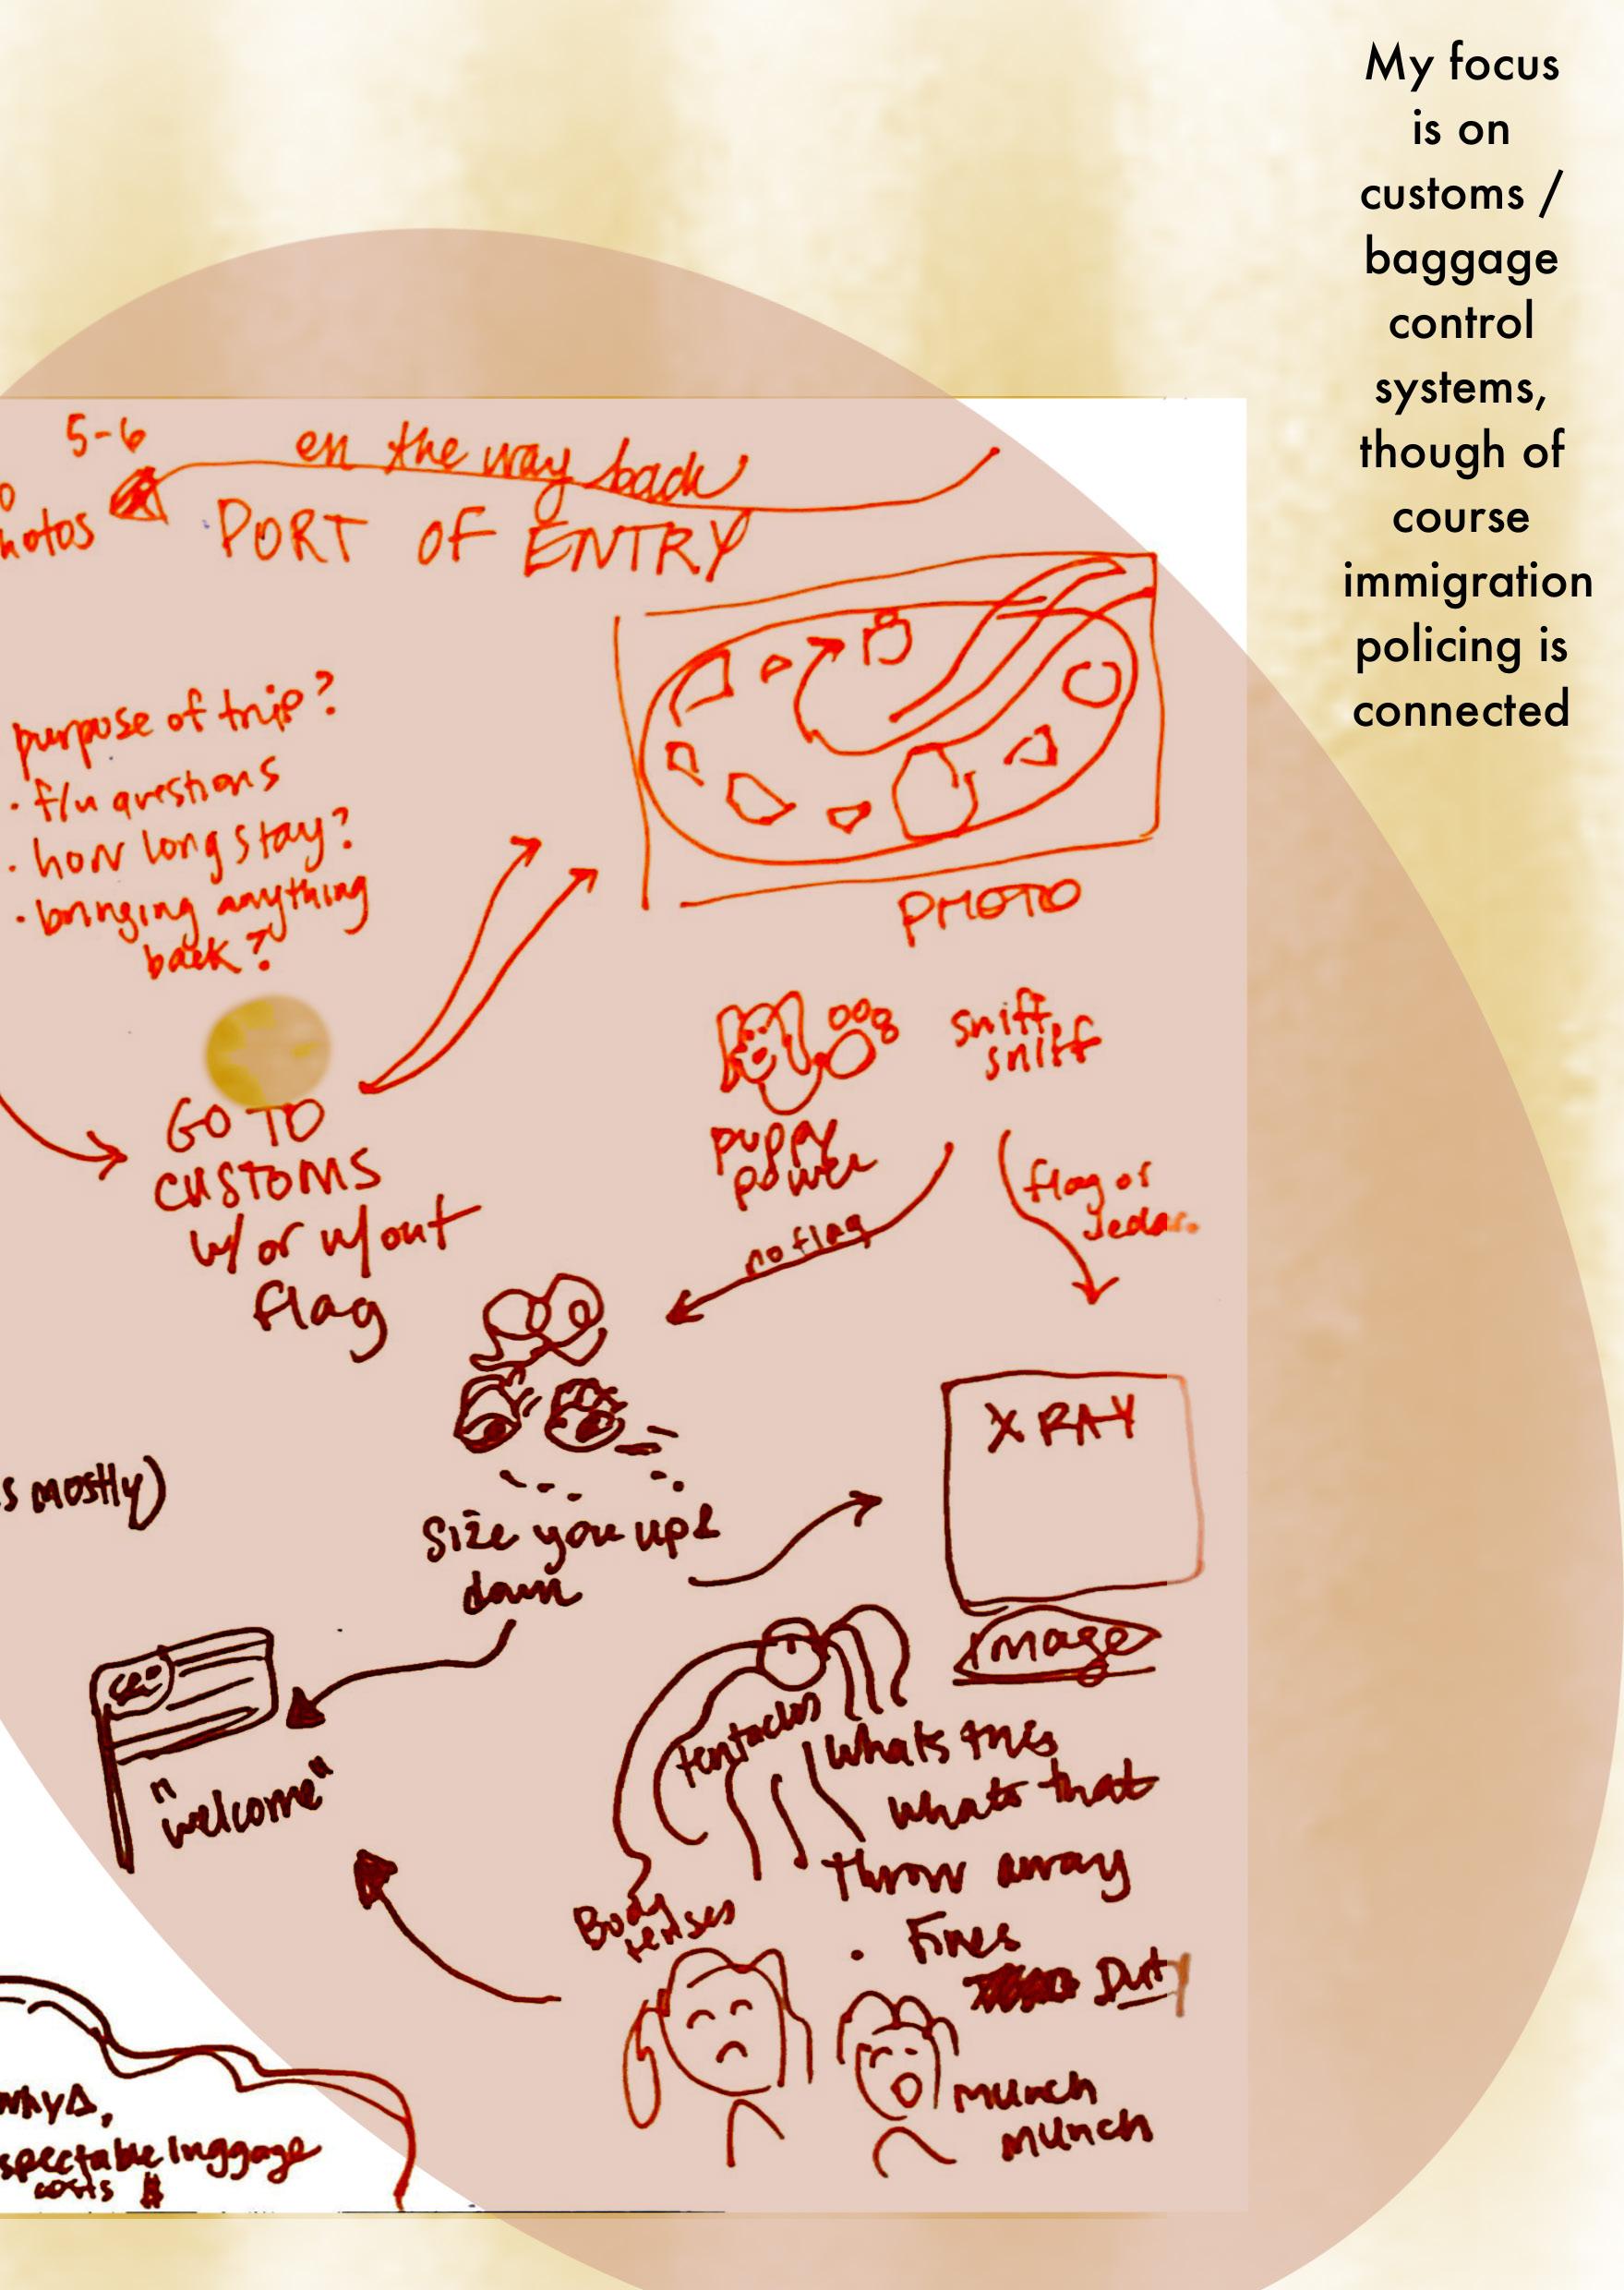 My focus
is on
customs /
baggage
control
systems,
though of
course
immigration
policing is
connected
5-6
en the way back
hotos
PORT OF ENTRY
purpose of trip?
· flu questions
· how long stay?
· bringing anything
back?
PHOTO
GO TO
CUSTOMS
w/ or w/out
flag
sniff
sniff
puppy
power
no flag
flag or
s mostly)
Size you up &
down
X RAY
Image
"welcome"
tentacles
whats this
whats that
throw away
Fines
Duty
Body
tenses
munch
munch
spectable luggage
costs $